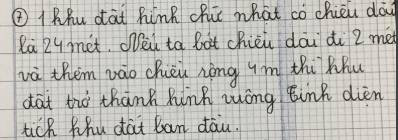 ⑦ 1 khu đất hình chữ nhật có chiều dài
là 24 mét. Nếu ta bớt chiều dài đi 2 mét
và thêm vào chiều rộng 4m thì khu
đất trở thành hình vuông. Tính diện
tích khu đất ban đầu.